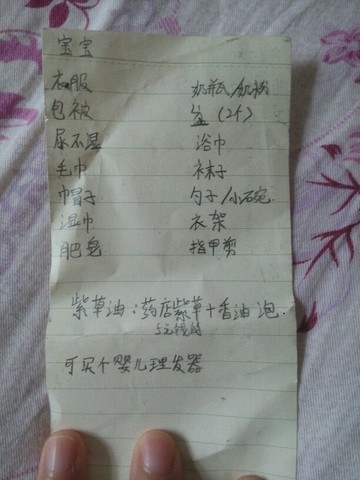 宝宝
衣服 奶瓶/奶粉
包被 盆(2个)
尿不湿 浴巾
毛巾 袜子
帽子 勺子/小碗
湿巾 衣架
肥皂 指甲剪
紫草油:药店紫草+香油泡.
5元钱的
可买个婴儿理发器